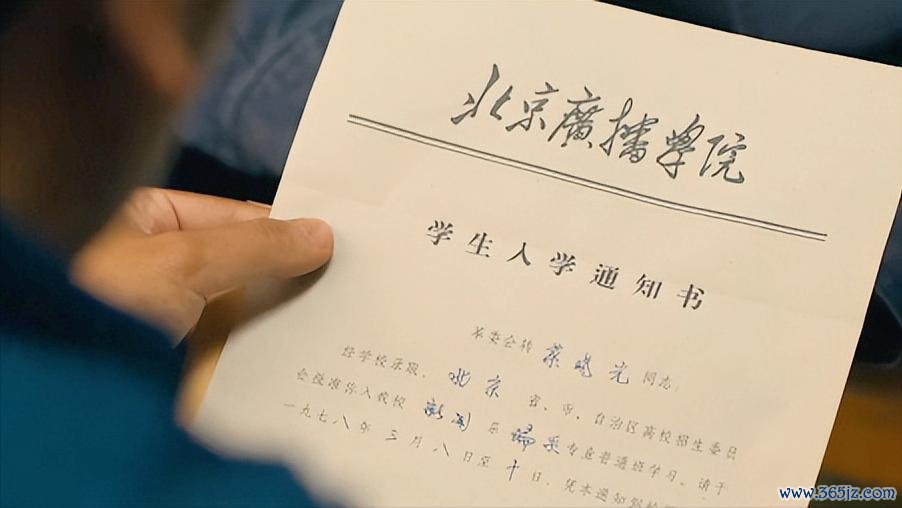 北京廣播学院
学生入学通知书
革委会转 蔡晓光 同志:
经学校录取、北京 省、市、自治区高校招生委员
会批准你入我校 新闻 系 编采 专业普通班学习。请于
一九七八年三月八日至十日、凭本通知到校
www.365jz.com